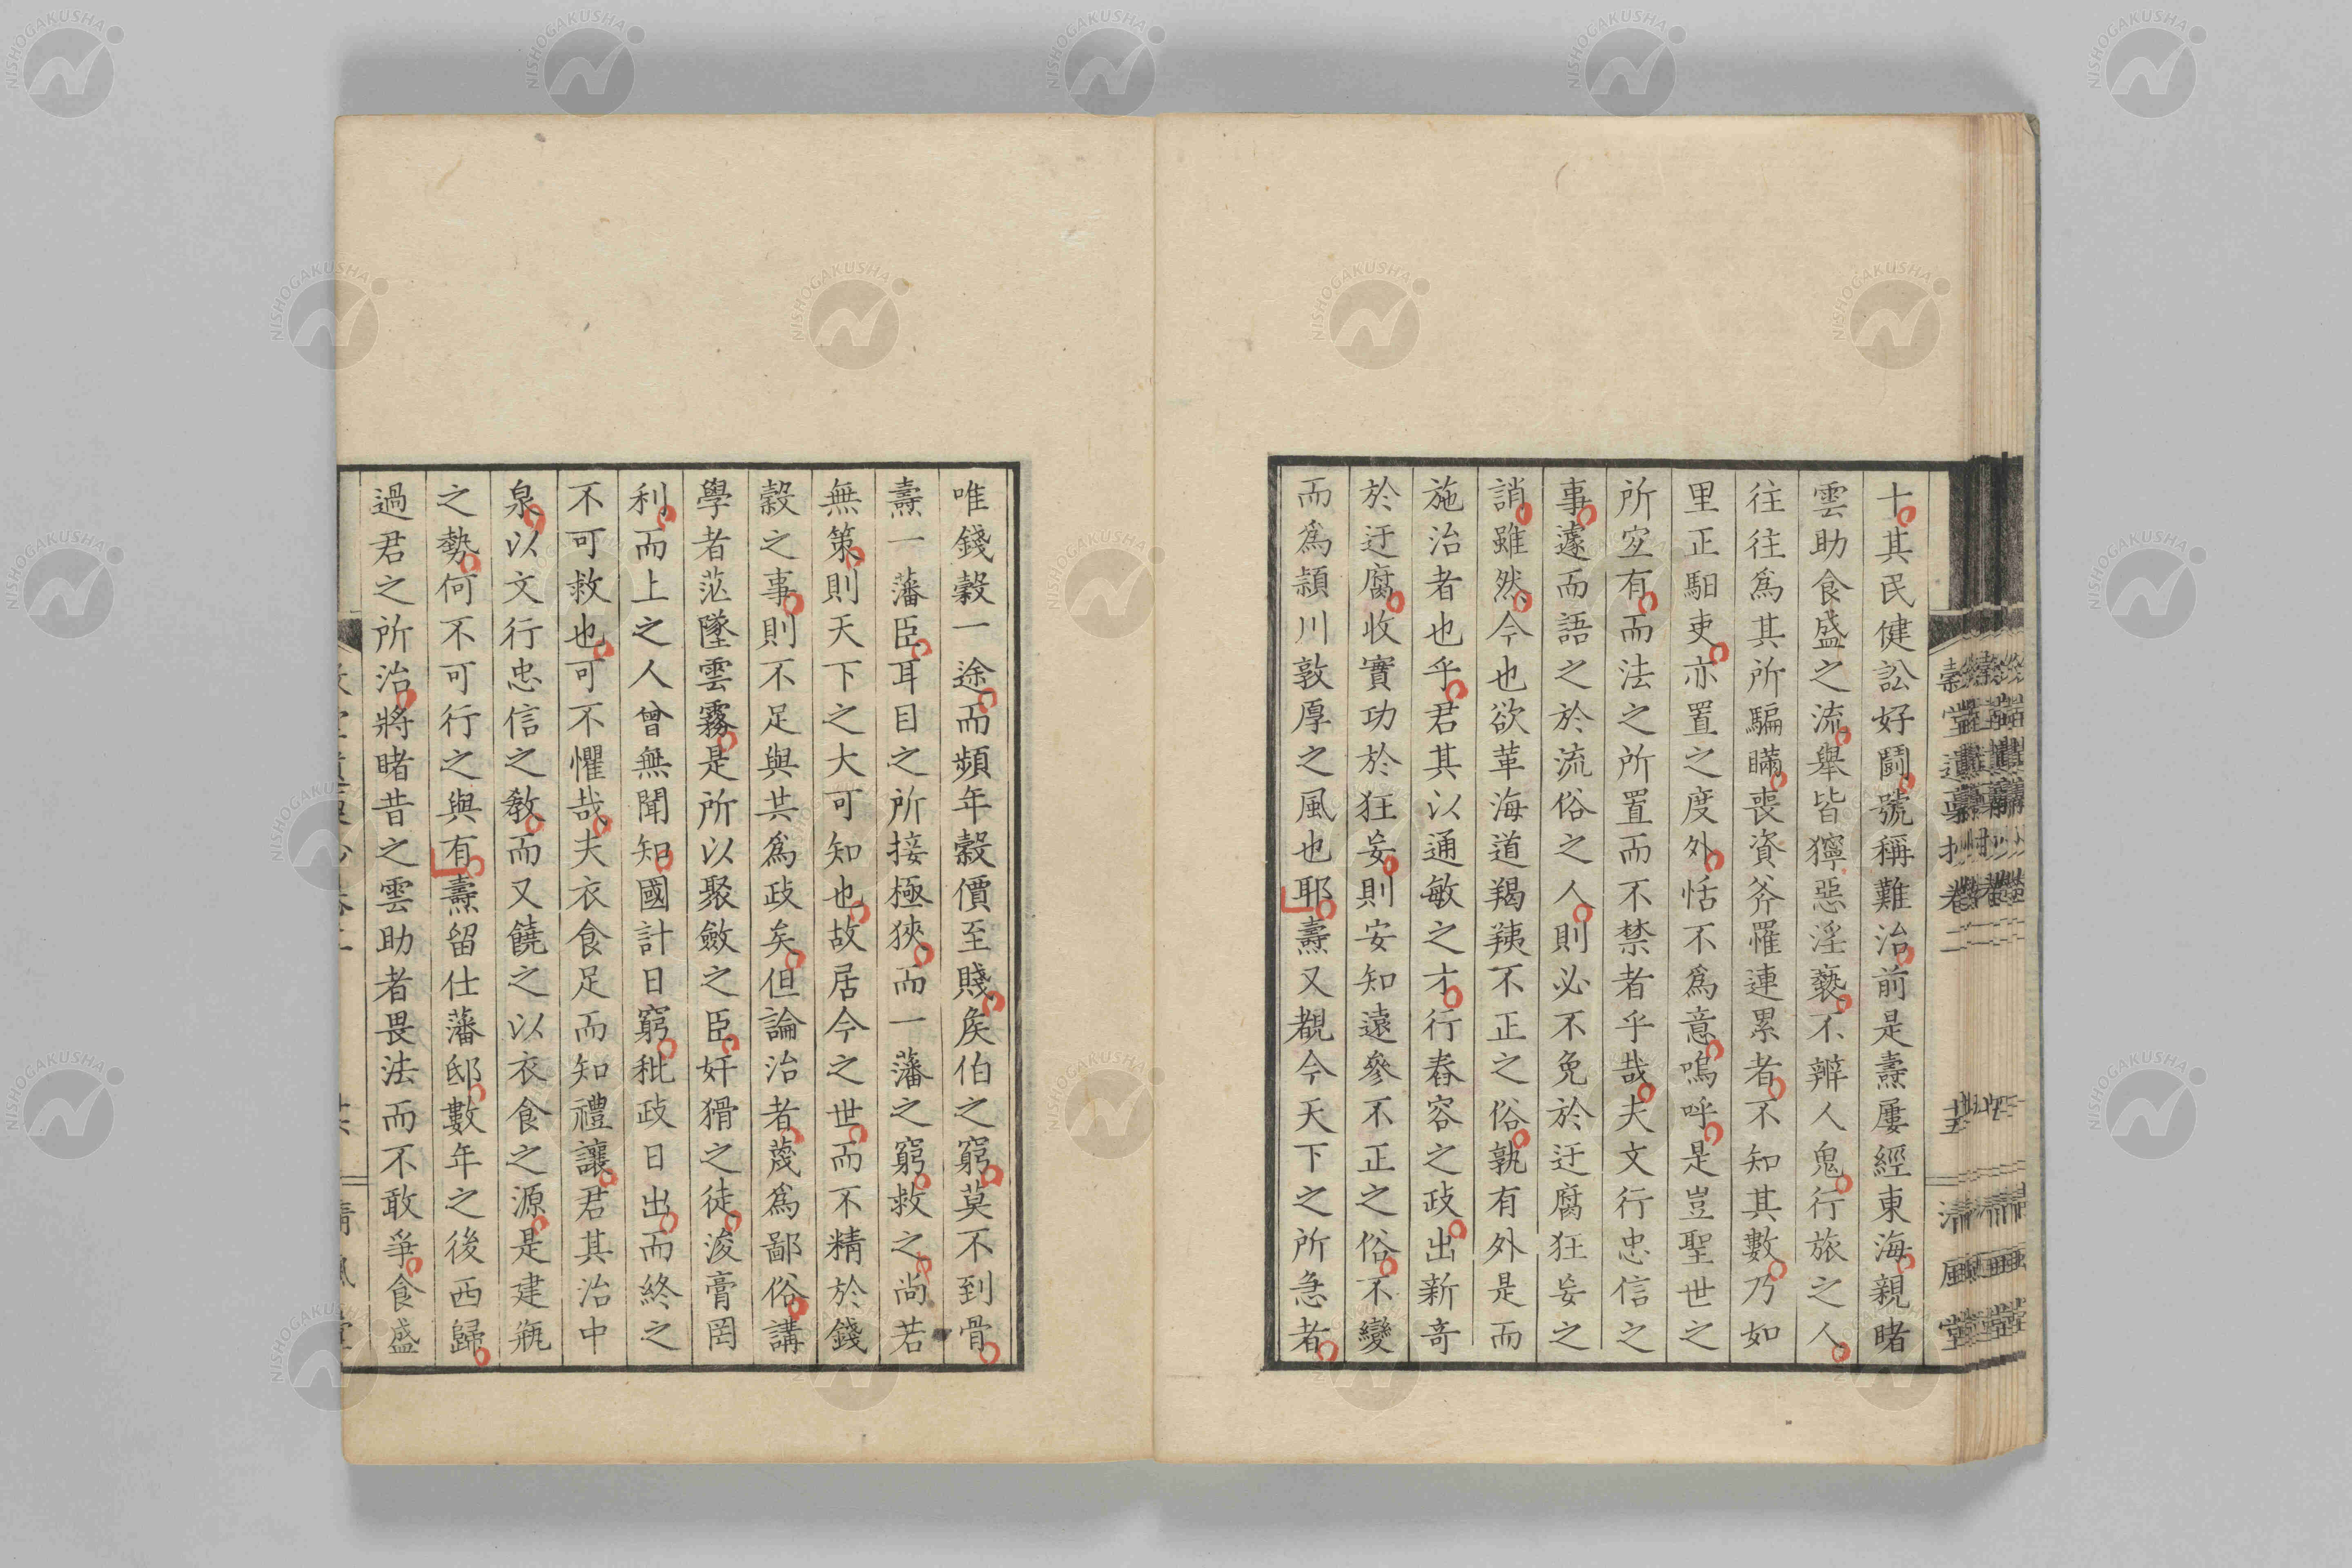 十其民健訟好鬪號稱難治前是壽屢經東海親睹
雲助食盛之流舉皆獰惡淫褻不辨人鬼行旅之人
往往爲其所騙瞞喪資斧罹連累者不知其數乃如
里正馹吏亦置之度外恬不爲意嗚呼是豈聖世之
所宜有而法之所置而不禁者乎哉夫文行忠信之
事遽而語之於流俗之人則必不免於迂腐狂妄之
誚雖然今也欲革海道羯羠不正之俗孰有外是而
施治者也乎君其以通敏之才行舂容之政出新奇
於迂腐收實功於狂妄則安知遠參不正之俗不變
而爲頴川敦厚之風也耶壽又覩今天下之所急者
唯錢穀一途而頻年穀價至賤矦伯之窮莫不到骨
壽一藩臣耳目之所接極狹而一藩之窮救之尚若
無策則天下之大可知也故居今之世而不精於錢
穀之事則不足與共爲政矣但論治者蔑爲鄙俗講
學者茫墜雲霧是所以聚斂之臣奸猾之徒浚膏罔
利而上之人曾無聞知國計日窮秕政日出而終之
不可救也可不懼哉夫衣食足而知禮讓君其治中
泉以文行忠信之教而又饒之以衣食之源是建瓶
之勢何不可行之與有壽留仕藩邸數年之後西歸
過君之所治將睹昔之雲助者畏法而不敢爭食盛